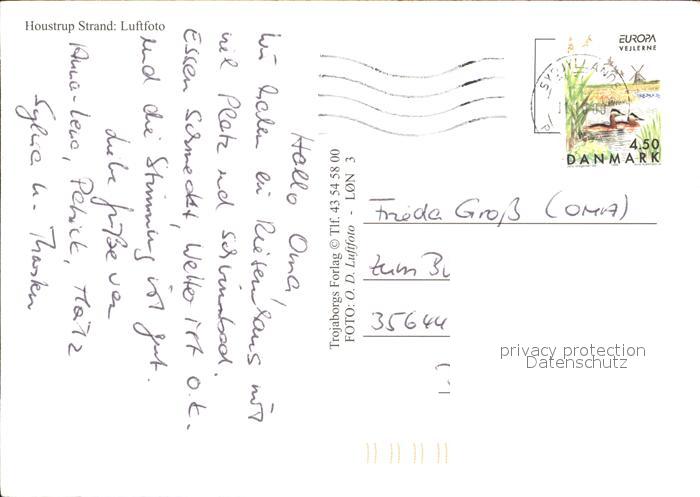 Houstrup Strand: Luftfoto
Hallo Oma!
Wir haben ein Riesenhaus mit
viel Platz und Schwimmbad.
Essen schmeckt, Wetter ist o.k.
und die Stimmung ist gut.
Liebe Grüße von
Anna-Lena, Patrick,
Sylvia u. Thorsten
Trojaborgs Forlag © Tlf. 43 54 58 00
FOTO: O. D. Luftfoto - LØN 3
EUROPA
VEJLERNE
SYDJYLLANDS
4.50
DANMARK
Frieda Groß (OMA)
zum
35644
privacy protection
Datenschutz